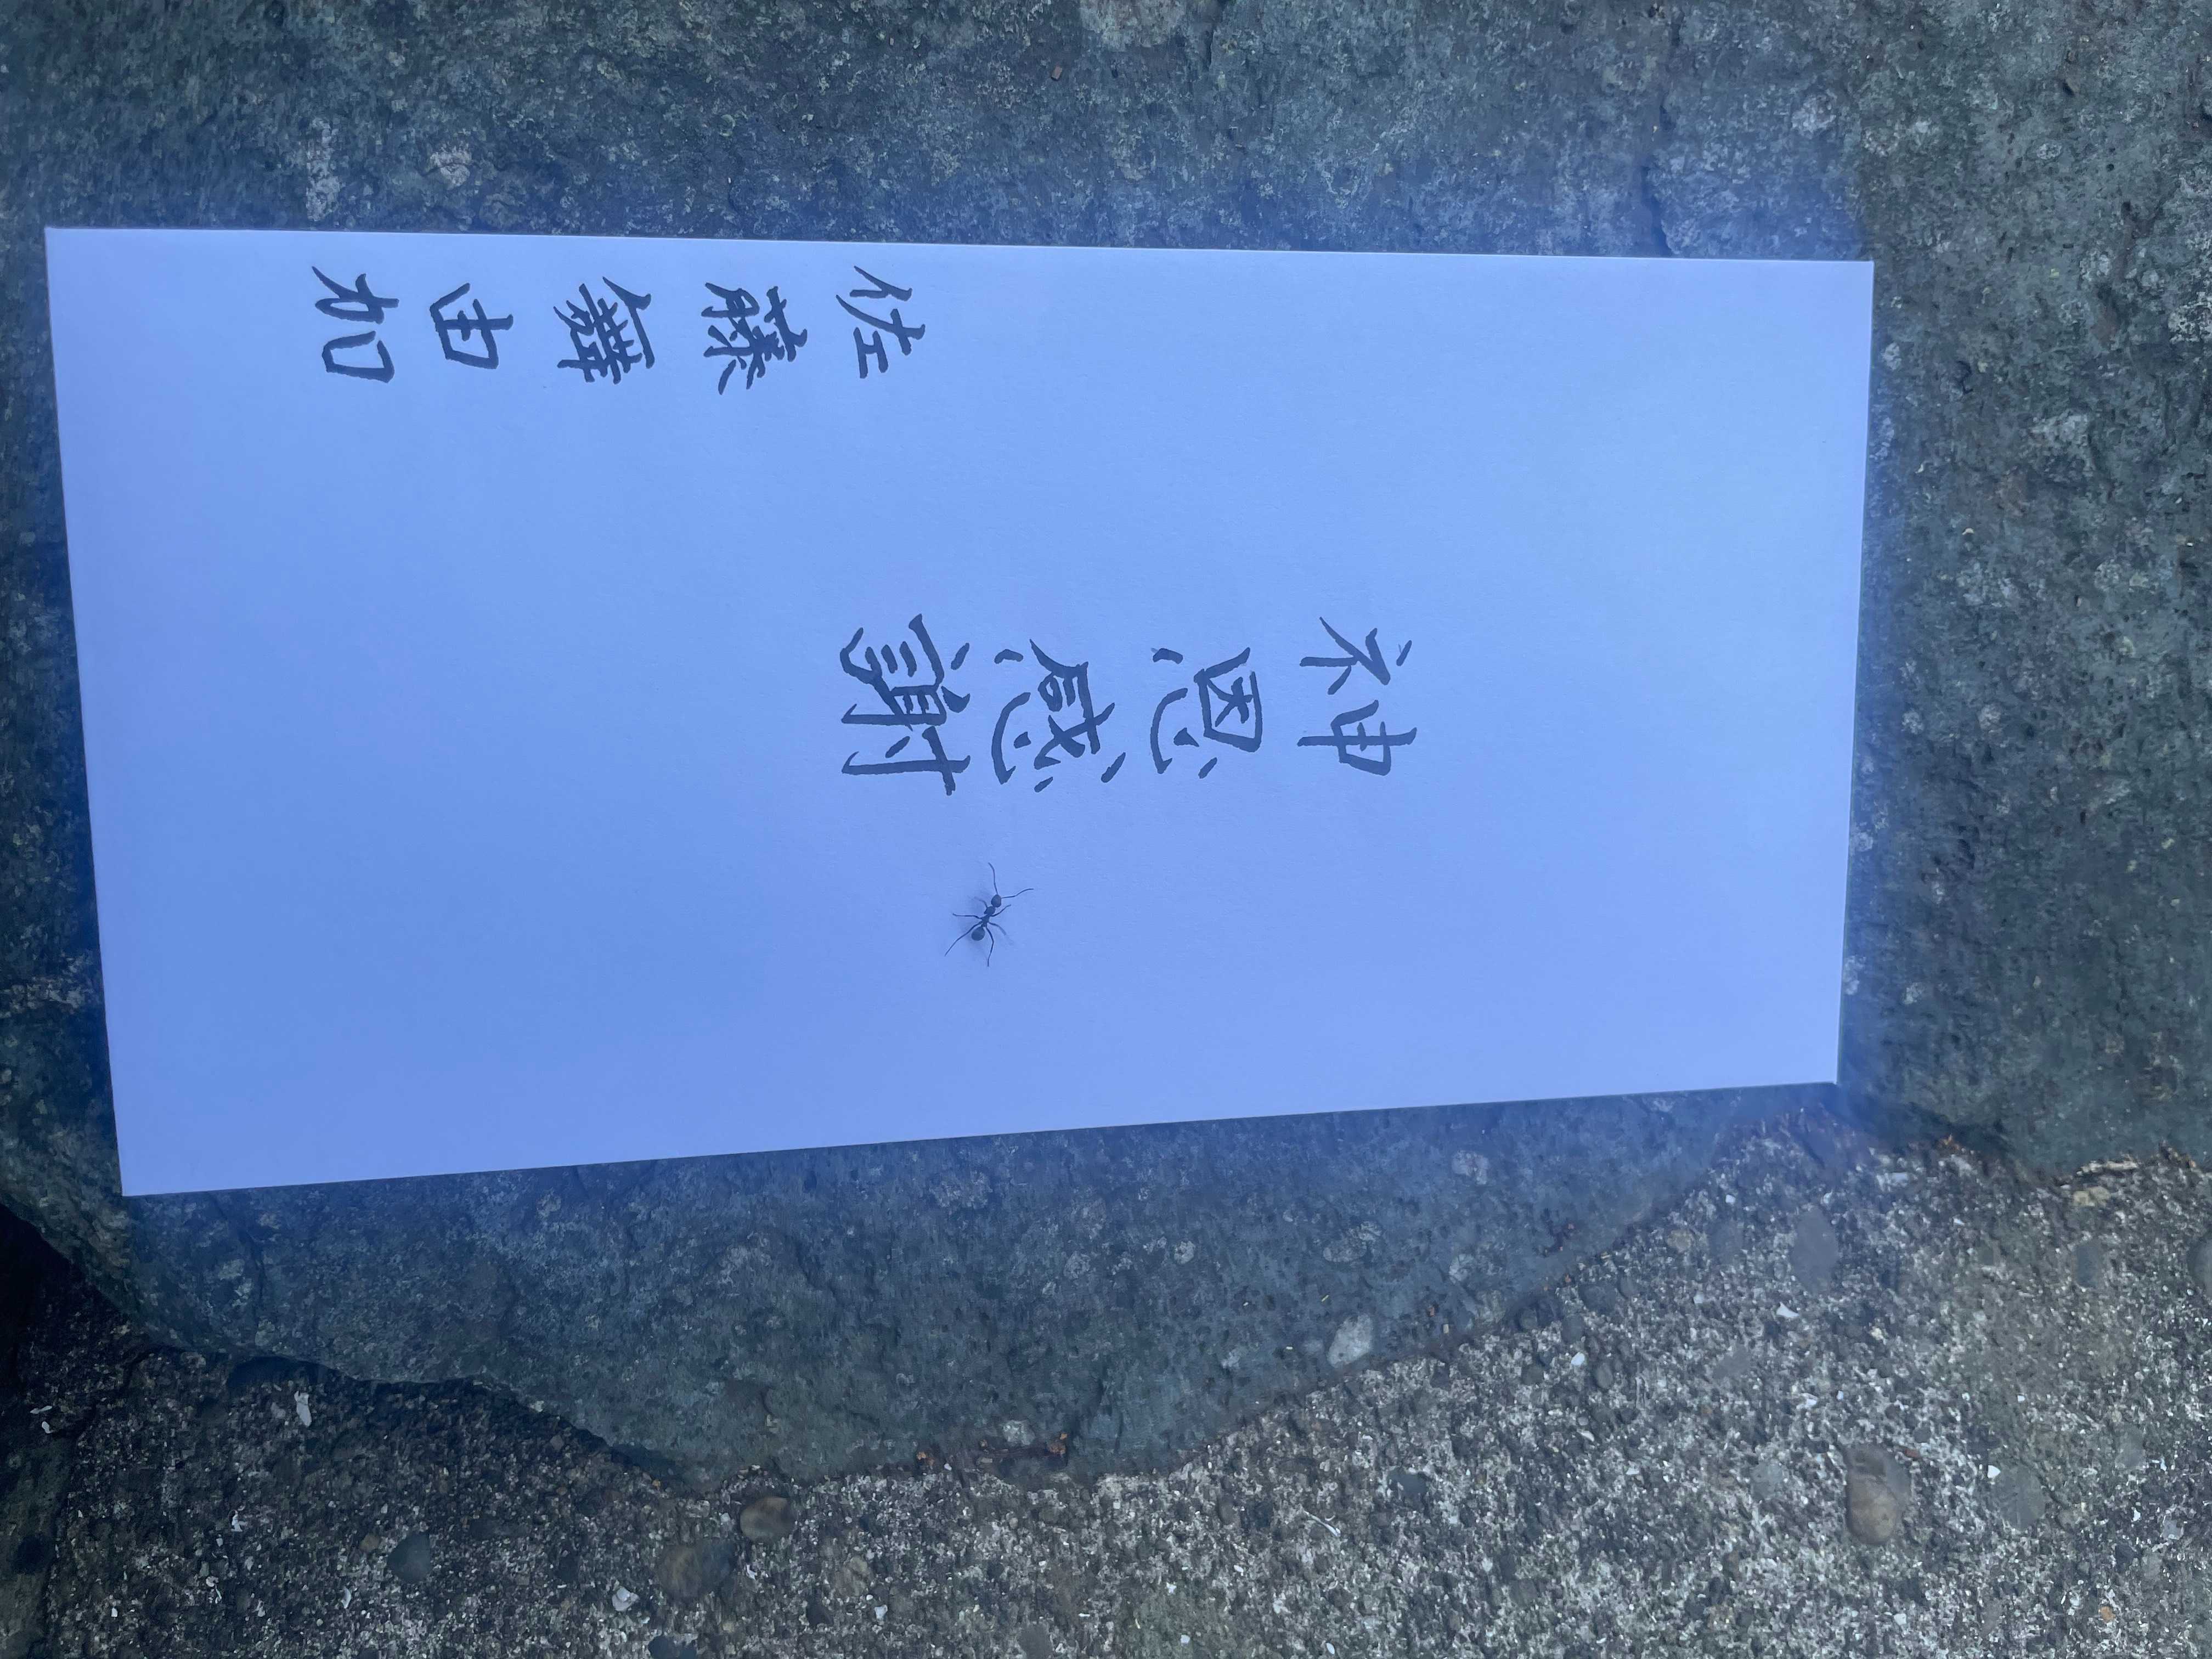 神恩感謝
佐藤舞由加